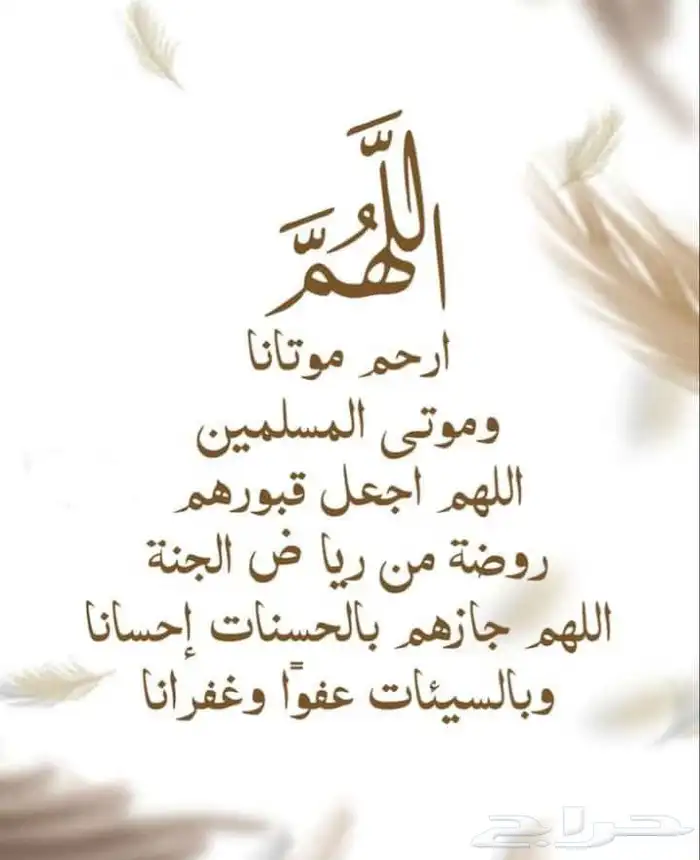 اللَّهُمَّ
ارحم موتانا
وموتى المسلمين
اللهم اجعل قبورهم
روضة من ريا ض الجنة
اللهم جازهم بالحسنات إحسانا
وبالسيئات عفوًا وغفرانا
حراج